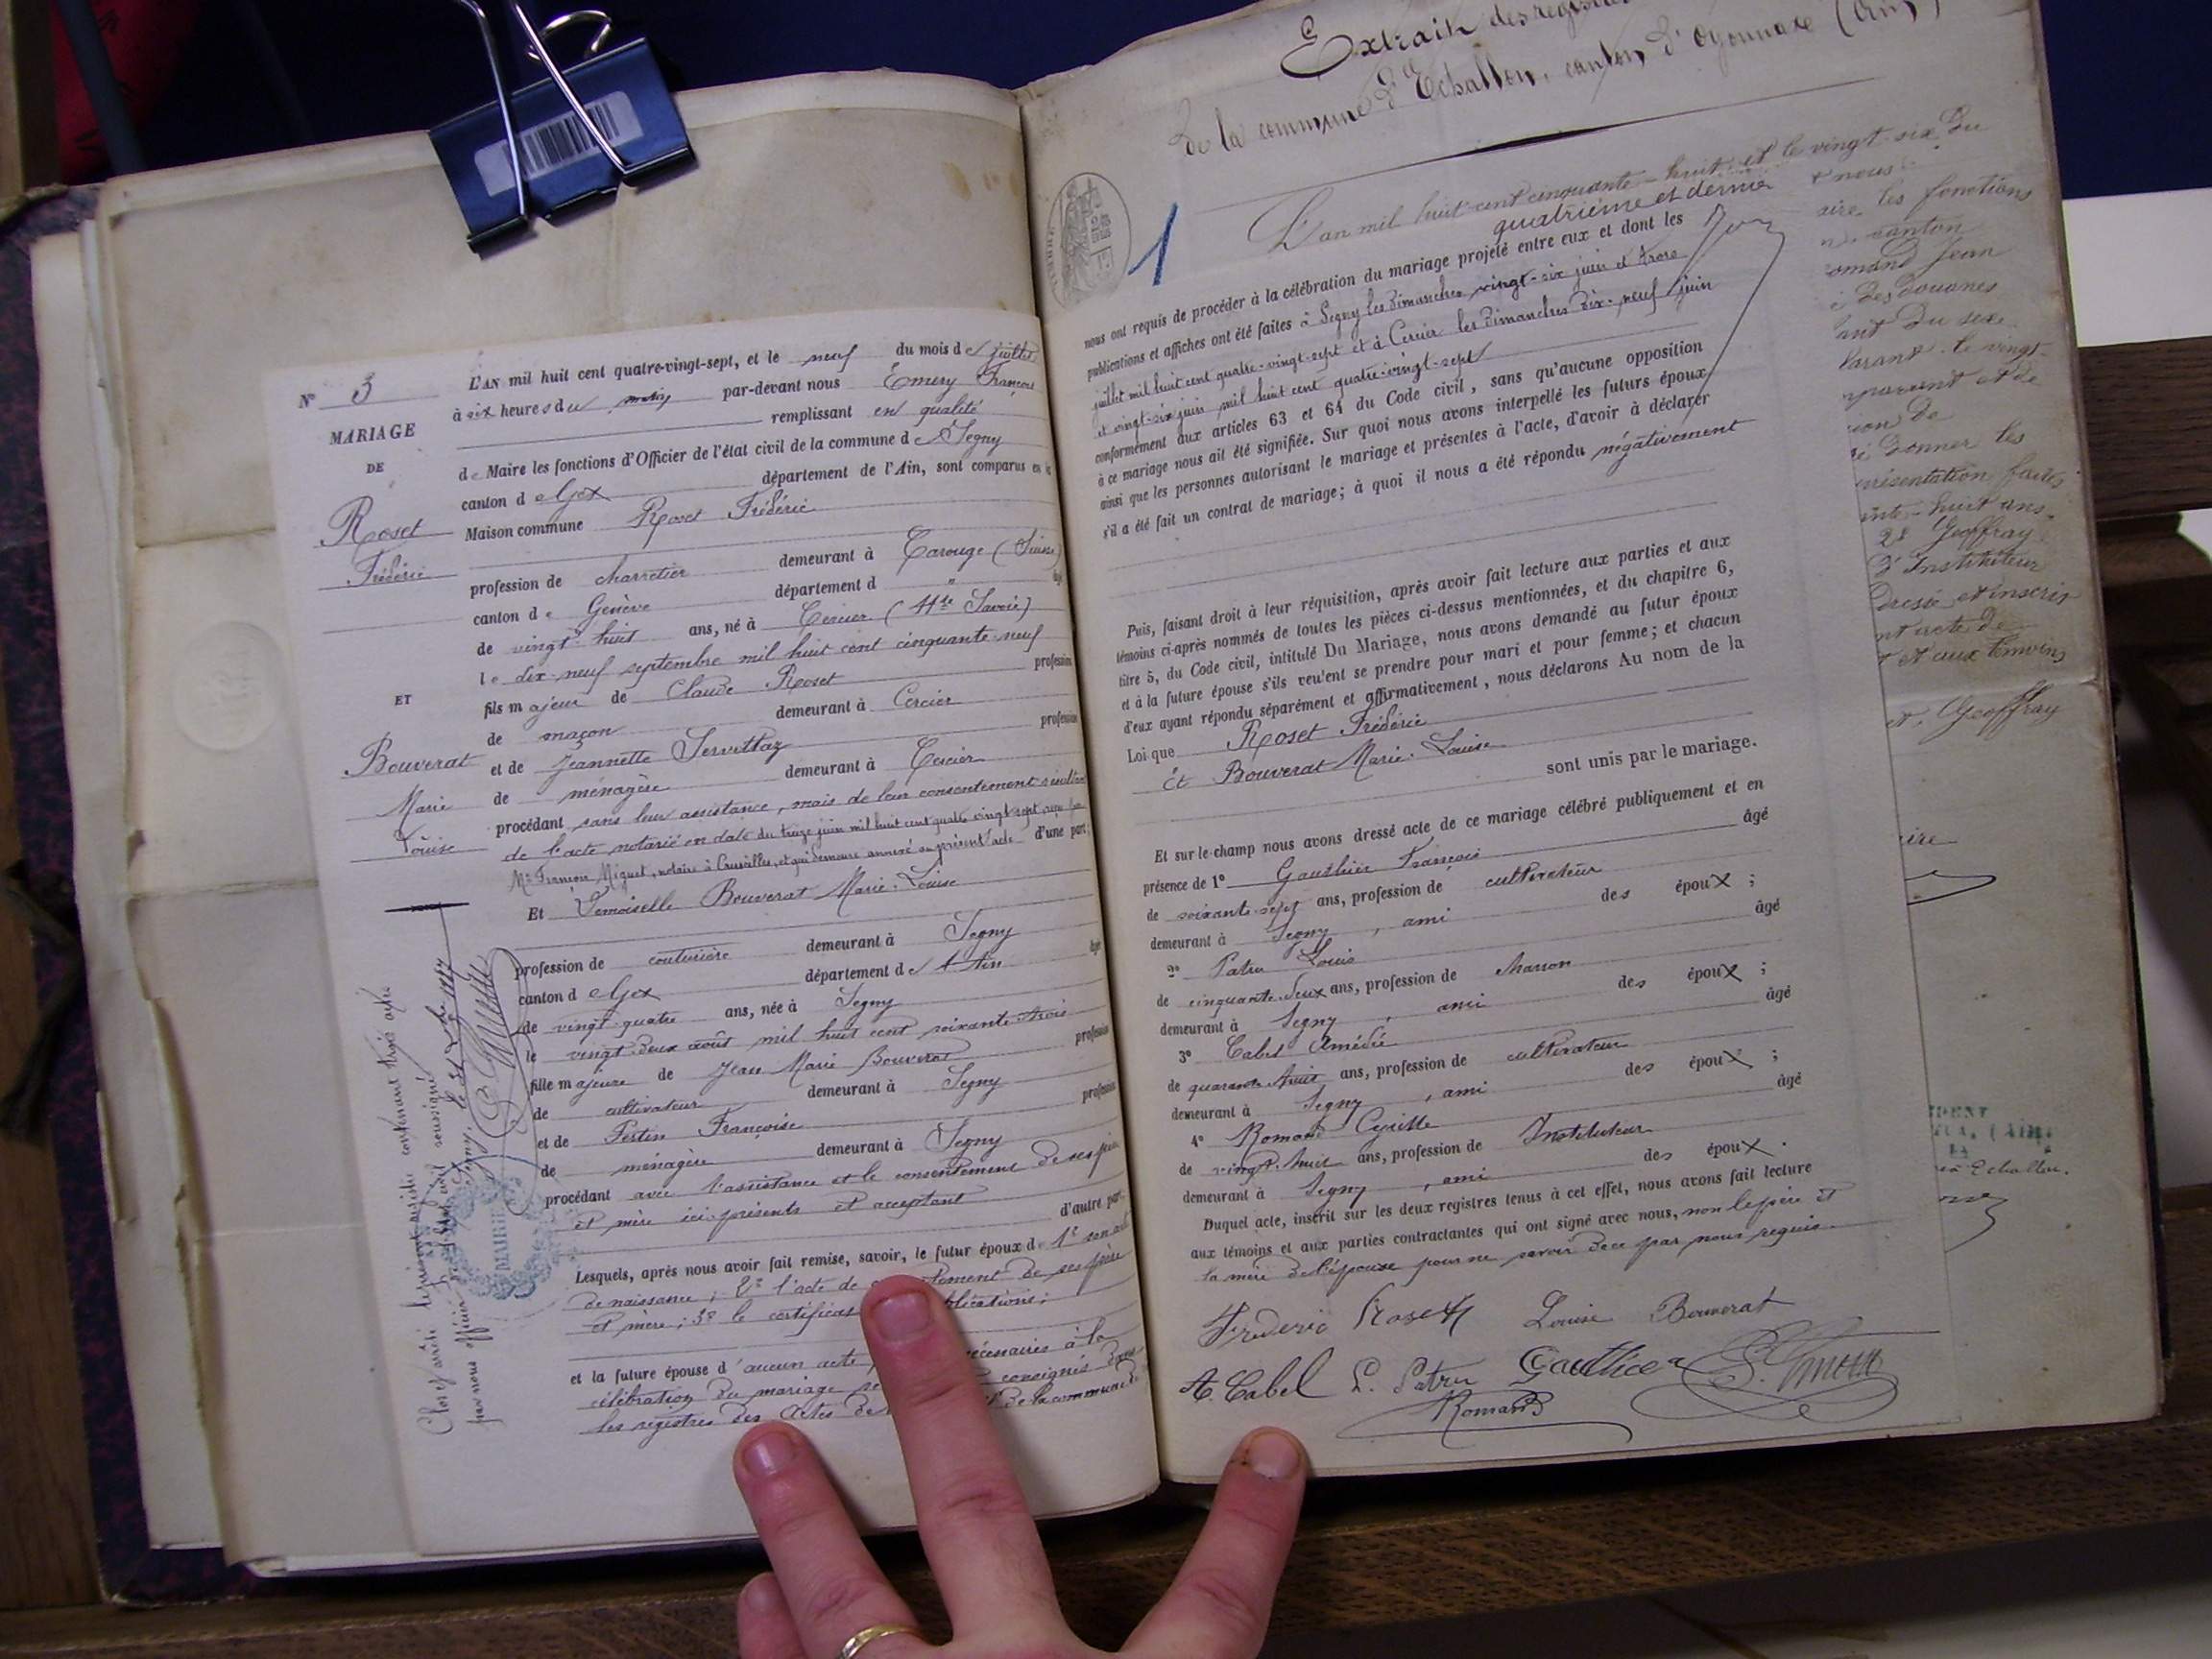 N° 3
MARIAGE
DE
Roset
Frédéric
ET
Bouverat
Marie
Louise
L'AN mil huit cent quatre-vingt-sept, et le neuf du mois de juillet
à six heures du par-devant nous Emery François
remplissant en qualité
de Maire les fonctions d'Officier de l'état civil de la commune de Segny
canton de Gex département de l'Ain, sont comparus en la
Maison commune Roset Frédéric
profession de charretier demeurant à Carouge (Suisse)
canton de Genève département d " âgé
de vingt huit ans, né à Cercier (Hte Savoie)
le dix-neuf septembre mil huit cent cinquante-neuf
fils majeur de Claude Roset profession
de maçon demeurant à Cercier
et de Jeannette Servettaz profession
de ménagère demeurant à Cercier
procédant sans leur assistance, mais de leur consentement
de l'acte notarié en date du treize juin mil huit cent quatre vingt sept reçu par
Me François Miguet, notaire à Cruseilles, et qui demeure annexé au présent acte d'une part;
Et Demoiselle Bouverat Marie-Louise
profession de couturière demeurant à Segny
canton de Gex département de l'Ain âgé
de vingt quatre ans, née à Segny
le vingt deux août mil huit cent soixante trois
fille majeure de Jean Marie Bouverat profession
de cultivateur demeurant à Segny
et de Pertin Françoise profession
de ménagère demeurant à Segny
procédant avec l'assistance et le consentement de ses père
et mère ici présents et acceptant
d'autre part.
Lesquels, après nous avoir fait remise, savoir, le futur époux de 1° son acte
de naissance; 2° l'acte de consentement de ses père
et mère; 3° le certificat publications;
et la future épouse d'aucun acte nécessaires à la
célébration du mariage consignés dans
les registres des Actes de de la commune de
Clos et arrêté le présent registre contenant trois actes
par nous officier de l'état civil soussigné
Segny, le 31 1887
MAIRIE
Extrait des registres
de la commune d'Echallon, canton d'Oyonnax (Ain)
L'an mil huit cent cinquante-huit et le vingt-six du
quatrième et dernier
1
nous ont requis de procéder à la célébration du mariage projeté entre eux et dont les
publications et affiches ont été faites à Segny les dimanches vingt-six juin et trois
juillet mil huit cent quatre-vingt-sept et à Cercier les dimanches dix-neuf juin
et vingt-six juin mil huit cent quatre-vingt-sept
conformément aux articles 63 et 64 du Code civil, sans qu'aucune opposition
à ce mariage nous ait été signifiée. Sur quoi nous avons interpellé les futurs époux
ainsi que les personnes autorisant le mariage et présentes à l'acte, d'avoir à déclarer
s'il a été fait un contrat de mariage; à quoi il nous a été répondu négativement
Puis, faisant droit à leur réquisition, après avoir fait lecture aux parties et aux
témoins ci-après nommés de toutes les pièces ci-dessus mentionnées, et du chapitre 6,
titre 5, du Code civil, intitulé Du Mariage, nous avons demandé au futur époux
et à la future épouse s'ils veulent se prendre pour mari et pour femme; et chacun
d'eux ayant répondu séparément et affirmativement, nous déclarons Au nom de la
Loi que Roset Frédéric
Et Bouverat Marie-Louise
sont unis par le mariage.
Et sur-le-champ nous avons dressé acte de ce mariage célébré publiquement et en
présence de 1° Gauthier François âgé
de soixante-sept ans, profession de cultivateur
demeurant à Segny, ami des époux;
2° Patru Louis âgé
de cinquante-deux ans, profession de charron
demeurant à Segny, ami des époux;
3° Cabel Amédée âgé
de quarante huit ans, profession de cultivateur
demeurant à Segny, ami des époux;
4° Romand Cyrille âgé
de vingt-huit ans, profession de Instituteur
demeurant à Segny, ami des époux.
Duquel acte, inscrit sur les deux registres tenus à cet effet, nous avons fait lecture
aux témoins et aux parties contractantes qui ont signé avec nous, non le père et
la mère de l'épouse pour ne savoir de ce par nous requis.
Frederic Roset Louise Bouverat
A. Cabel L. Patru Gauthier
Romand
aire les fonctions
canton
omand Jean
des douanes
ant du sexe
larant le vingt-
donner les
présentation faites
ante-huit ans.
Geoffray
d'Instituteur
Dressé et inscrit
acte de
et aux témoins
Geoffray
Echallon.